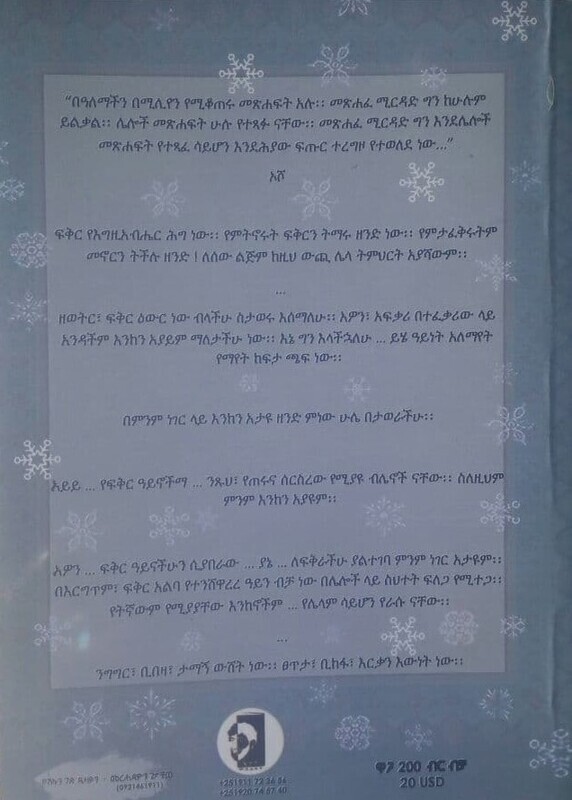 “በዓለማችን በሚሊየን የሚቆጠሩ መጽሐፍት አሉ፡፡ መጽሐፈ ሚርዳድ ግን ከሁሉም
ይልቃል፡፡ ሌሎች መጽሐፍት ሁሉ የተጻፉ ናቸው፡፡ መጽሐፈ ሚርዳድ ግን እንደሌሎች
መጽሐፍት የተጻፈ ሳይሆን እንደሕያው ፍጡር ተረግዞ የተወለደ ነው...”
ኦሾ
ፍቅር የእግዚአብሔር ሕግ ነው፡፡ የምትኖሩት ፍቅርን ትማሩ ዘንድ ነው፡፡ የምታፈቅሩትም
መኖርን ትችሉ ዘንድ ! ለሰው ልጅም ከዚህ ውጪ ሌላ ትምህርት አያሻውም፡፡
...
ዘወትር፣ ፍቅር ዕውር ነው ብላችሁ ስታወሩ እሰማለሁ፡፡ አዎን፣ አፍቃሪ በተፈቃሪው ላይ
አንዳችም እንከን አያይም ማለታችሁ ነው፡፡ እኔ ግን እላችኋለሁ ... ይሄ ዓይነት አለማየት
የማየት ከፍታ ጫፍ ነው፡፡
በምንም ነገር ላይ እንከን አታዩ ዘንድ ምነው ሁሌ በታወራችሁ፡፡
አይይ ... የፍቅር ዓይኖችማ ... ንጹህ፣ የጠሩና ሰርስረው የሚያዩ ብሌኖች ናቸው፡፡ ስለዚህም
ምንም እንከን አያዩም፡፡
አዎን ... ፍቅር ዓይናችሁን ሲያበራው ... ያኔ ... ለፍቅራችሁ ያልተገባ ምንም ነገር አታዩም፡፡
በእርግጥም፣ ፍቅር አልባ የተንሸዋረረ ዓይን ብቻ ነው በሌሎች ላይ ስህተት ፍለጋ የሚተጋ፡፡
የትኛውም የሚያያቸው እንከኖችም ... የሌላም ሳይሆን የራሱ ናቸው፡፡
...
ንግግር፣ ቢበዛ፣ ታማኝ ውሸት ነው፡፡ ፀጥታ፣ ቢከፋ፣ እርቃን እውነት ነው፡፡
(0921661911)
+251911 72 36 56
+251920 74 57 40
ዋጋ 200 ብር ብቻ
20 USD